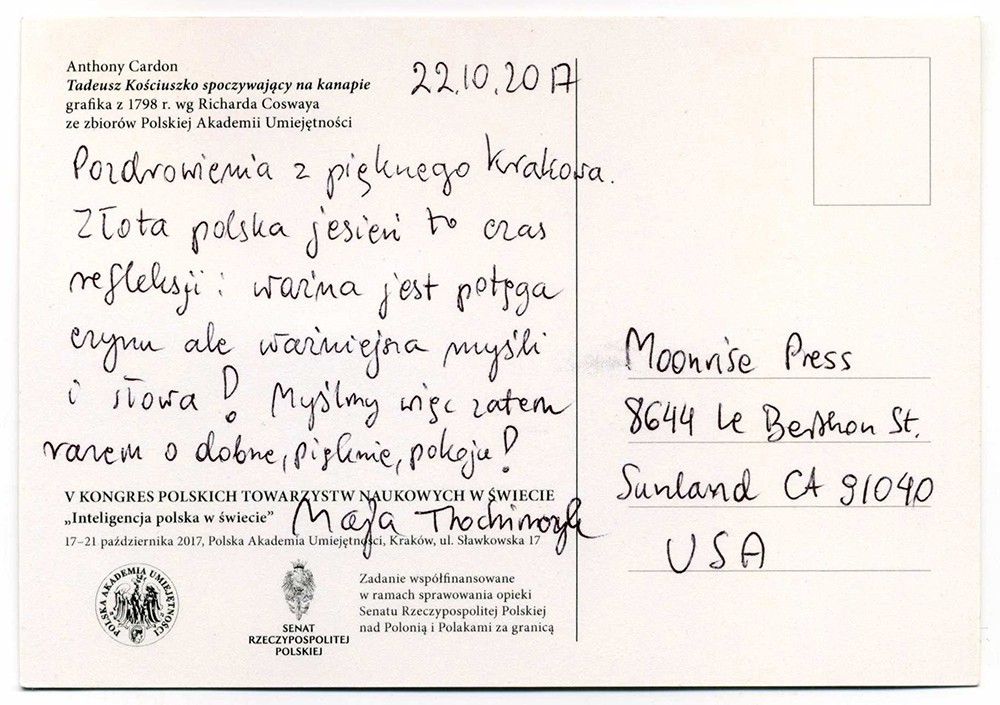 Anthony Cardon
Tadeusz Kościuszko spoczywający na kanapie
grafika z 1798 r. wg Richarda Coswaya
ze zbiorów Polskiej Akademii Umiejętności
22.10.2017
Pozdrowienia z pięknego Krakowa.
Złota polska jesień to czas
refleksji: ważna jest potęga
czynu ale ważniejsza myśli
i słowa! Myślmy więc zatem
razem o dobrze, pięknie, pokoju!
V KONGRES POLSKICH TOWARZYSTW NAUKOWYCH W ŚWIECIE
„Inteligencja polska w świecie”
Maja Trochimczyk
17–21 października 2017, Polska Akademia Umiejętności, Kraków, ul. Sławkowska 17
POLSKA AKADEMIA UMIEJĘTNOŚCI
SENAT
RZECZYPOSPOLITEJ
POLSKIEJ
Zadanie współfinansowane
w ramach sprawowania opieki
Senatu Rzeczypospolitej Polskiej
nad Polonią i Polakami za granicą
Moonrise Press
8644 Le Berthon St.
Sunland CA 91040
USA